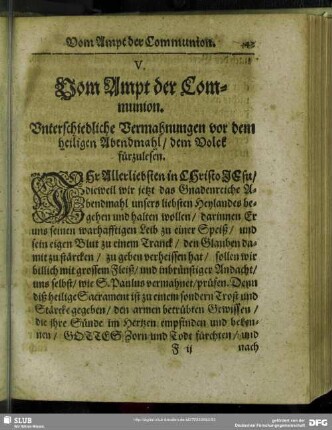 Vom Ampt der Communion.
V.
Vom Ampt der Com-
munion.
Vnterschiedliche Vermahnungen vor dem
heiligen Abendmahl / dem Volck
fürzulesen.
IHr Allerliebsten in CHristo JEsu /
dieweil wir jetzt das Gnadenreiche A-
bendmahl unsers liebsten Heylandes be-
gehen und halten wollen / darinnen Er
uns seinen warhafftigen Leib zu einer Speiß / und
sein eigen Blut zu einem Tranck / den Glauben da-
mit zu stärcken / zu geben verheissen hat / sollen wir
billich mit grossem Fleiß / und inbrünstiger Andacht /
uns selbst / wie S. Paulus vermahnet / prüfen. Denn
diß heilige Sacrament ist zu einem sondern Trost und
Stärcke gegeben / den armen betrübten Gewissen /
die ihre Sünde im Hertzen empfinden und beken-
nen / GOTTES Zorn und Todt fürchten / und
F ij
nach
SLUB
Wir führen Wissen.
gefördert von der
Deutschen Forschungsgemeinschaft
DFG